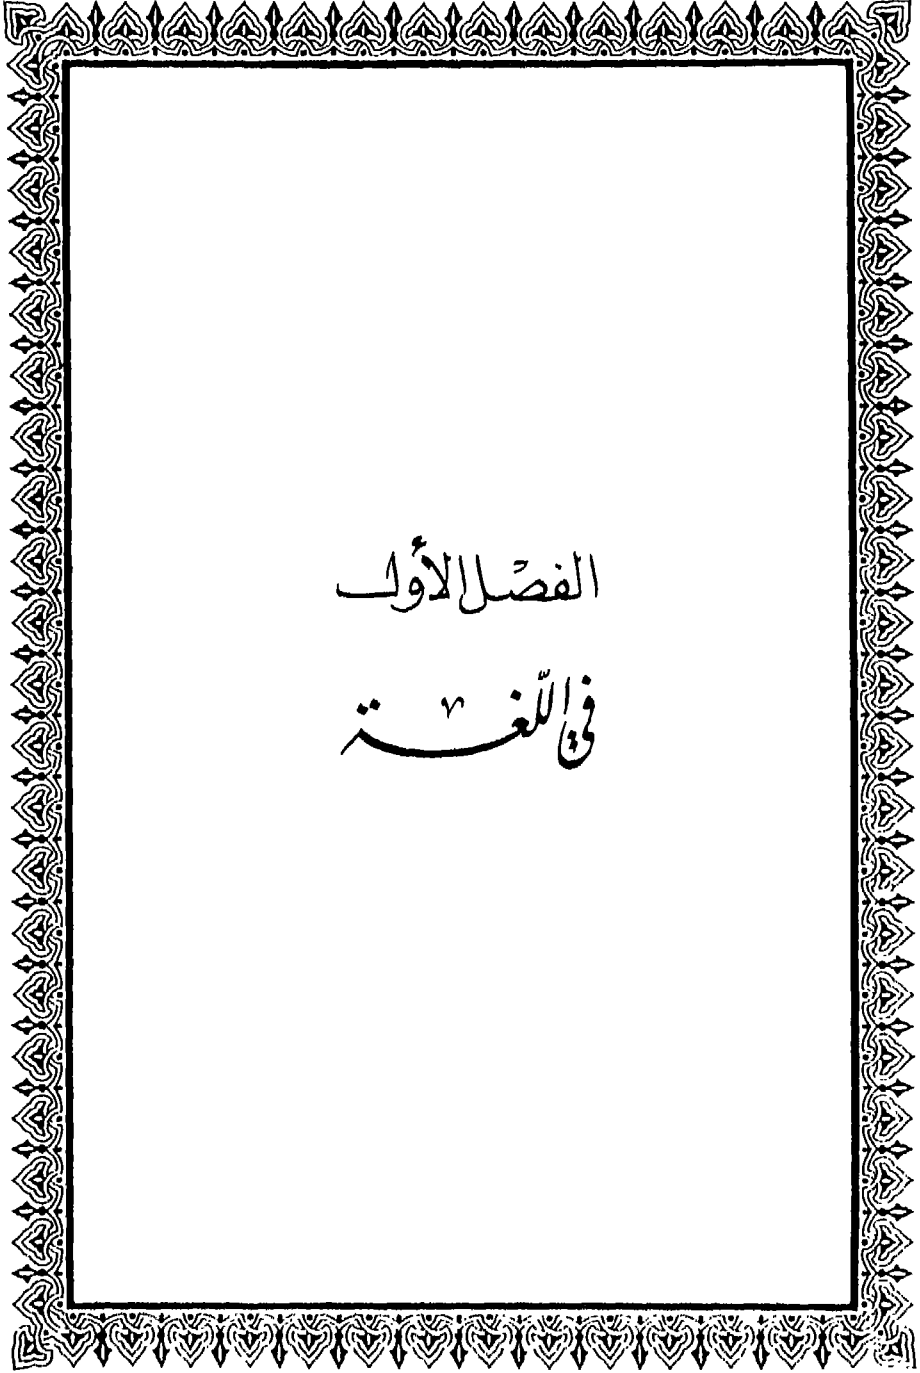 الفصل الأول
في اللغة